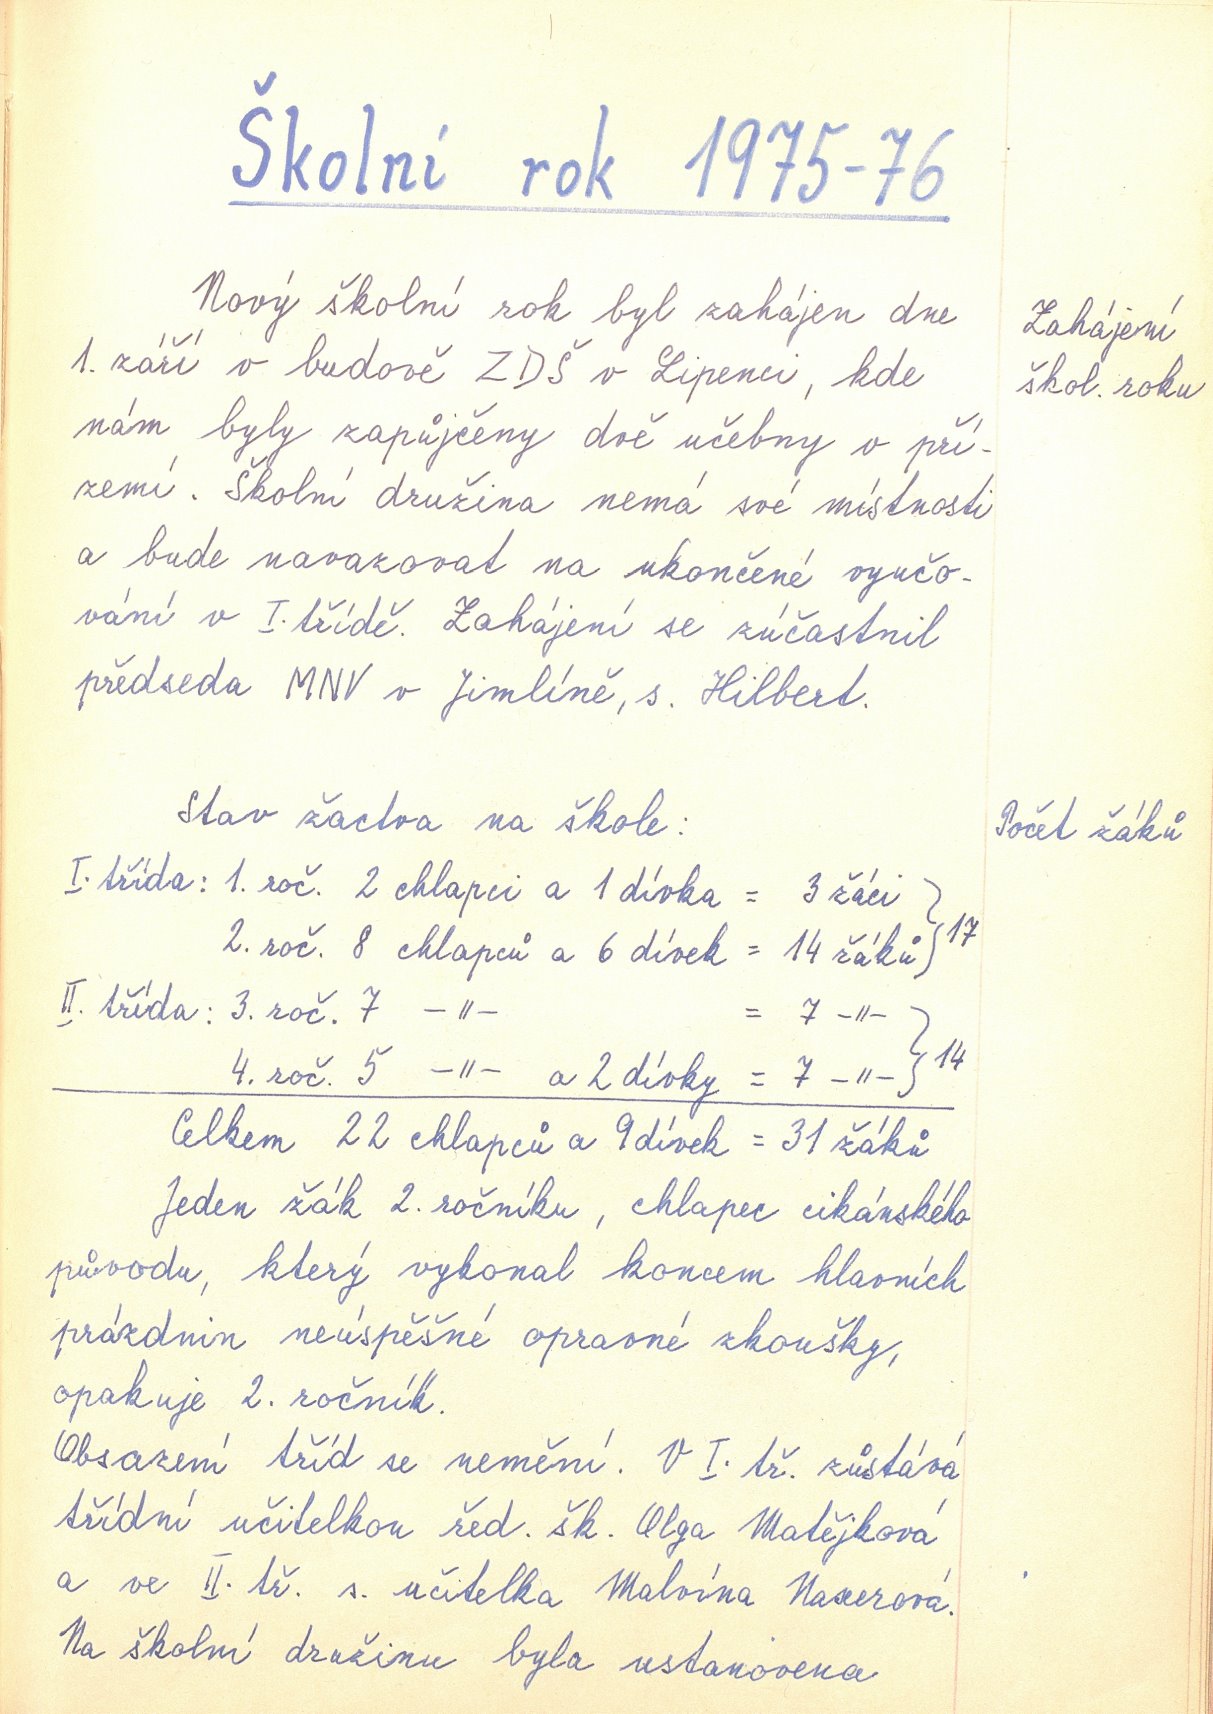 Školní rok 1975-76
Nový školní rok byl zahájen dne
Zahájení
1. září v budově ZDŠ v Lipenci, kde
škol. roku
nám byly zapůjčeny dvě učebny v pří-
zemí. Školní družina nemá své místnosti
a bude navazovat na ukončené vyučo-
vání v I. třídě. Zahájení se zúčastnil
předseda MNV v Jimlíně, s. Hilbert.
Stav žactva na škole:
Počet žáků
I. třída: 1. roč. 2 chlapci a 1 dívka = 3 žáci
2. roč. 8 chlapců a 6 dívek = 14 žáků } 17
II. třída: 3. roč. 7 -"- = 7 -"-
4. roč. 5 -"- a 2 dívky = 7 -"- } 14
Celkem 22 chlapců a 9 dívek = 31 žáků
Jeden žák 2. ročníku, chlapec cikánského
původu, který vykonal koncem hlavních
prázdnin neúspěšné opravné zkoušky,
opakuje 2. ročník.
Obsazení tříd se nemění. V I. tř. zůstává
třídní učitelkou řed. šk. Olga Matějková
a ve II. tř. s. učitelka Malvína Naxerová.
Na školní družinu byla ustanovena